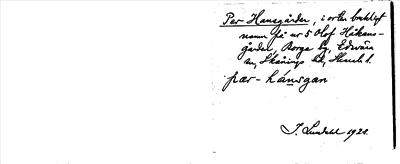 Per Hansgården, i orten brukligt
namn på nr 5 Olof Håkans-
gården, Borga by, Edvära
sn, Skånings hd, Skarab. l.
pær- hánsgan
J. Lundahl 1921.